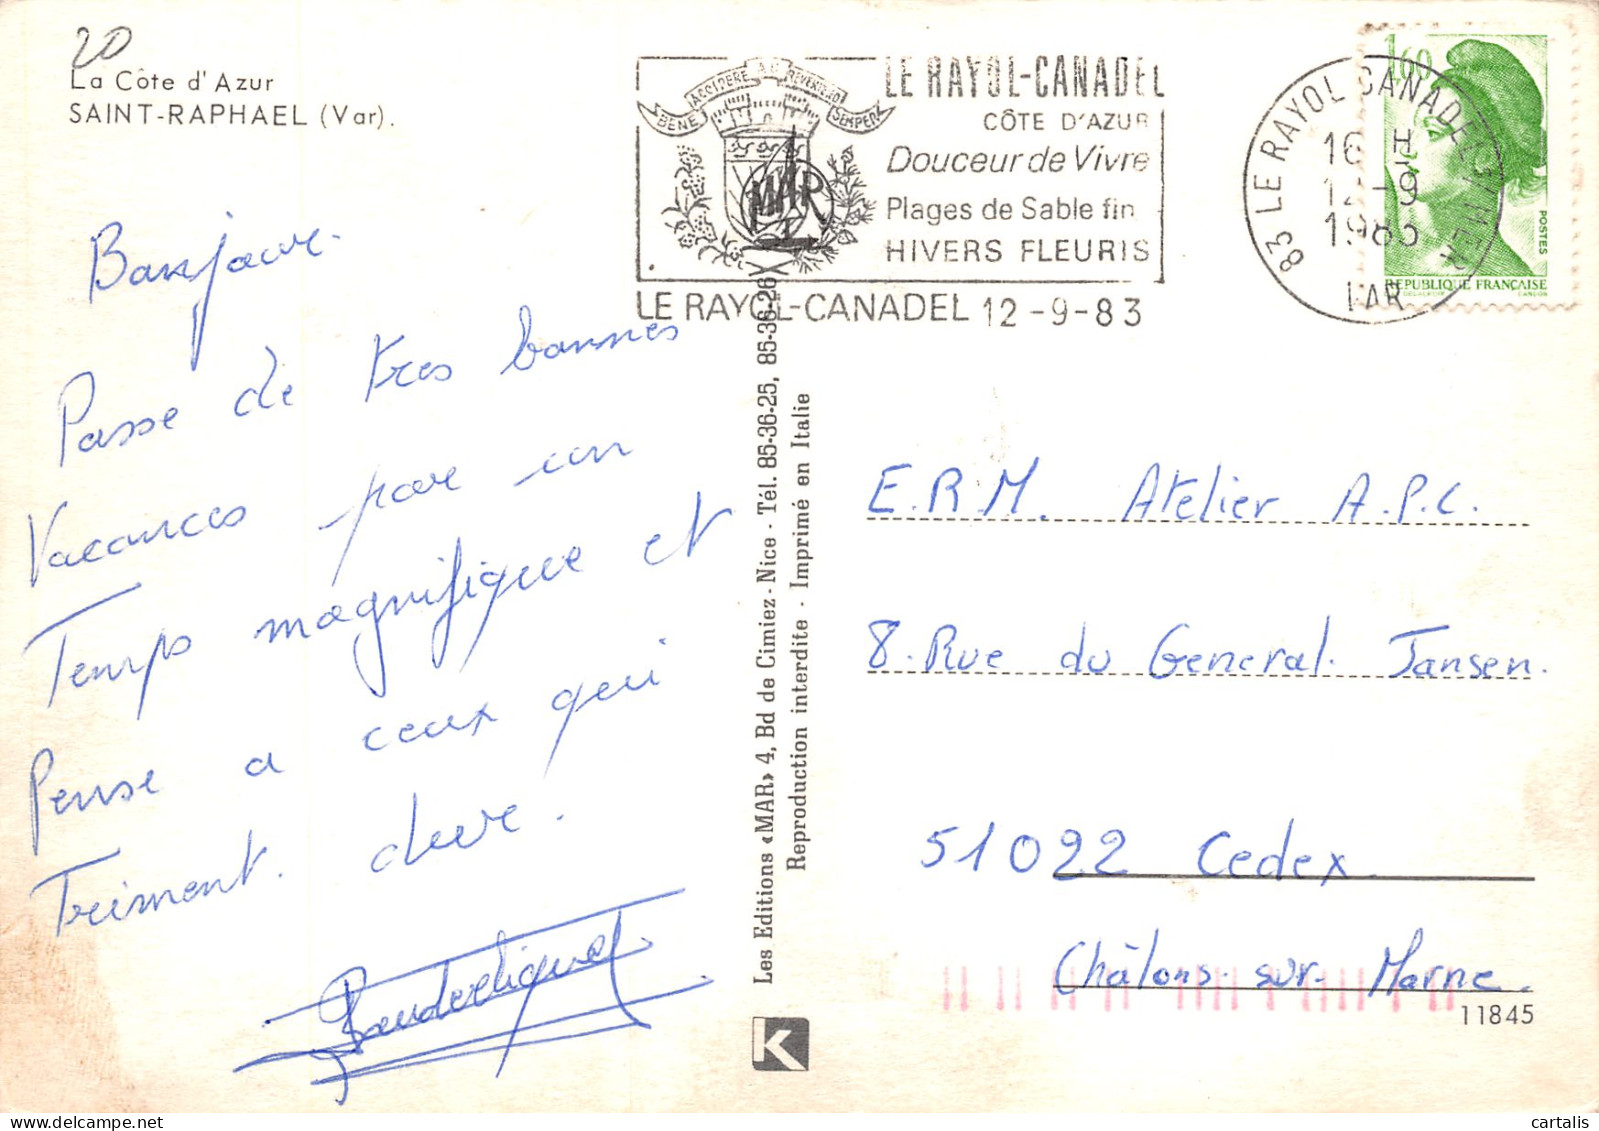 20
La Côte d'Azur
SAINT-RAPHAEL (Var).
BENE ACCIDERE AC REVERTERO SEMPER
MAR
LE RAYOL-CANADEL
CÔTE D'AZUR
Douceur de Vivre
Plages de Sable fin
HIVERS FLEURIS
LE RAYOL-CANADEL 12-9-83
83 LE RAYOL CANADEL S/MER
16 H
12-9
1983
VAR
1,60
POSTES
REPUBLIQUE FRANÇAISE
Bonjour.
Passe de tres bonnes
Vacances par un
Temps magnifique et
Pense a ceux qui
Triment. dure.
Les Editions «MAR» 4, Bd de Cimiez - Nice - Tél. 85-36-25, 85-36-26
Reproduction interdite - Imprimé en Italie
E.R.M. Atelier A.P.C.
8. Rue du General. Jansen.
51022 Cedex
Châlons-sur-Marne.
11845
K
cartalis